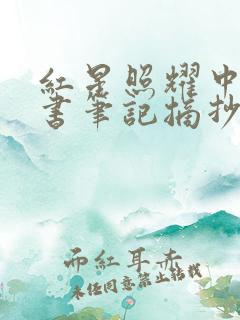 紅星照耀中
書筆記摘抄
面紅耳赤
未經同意禁止轉載